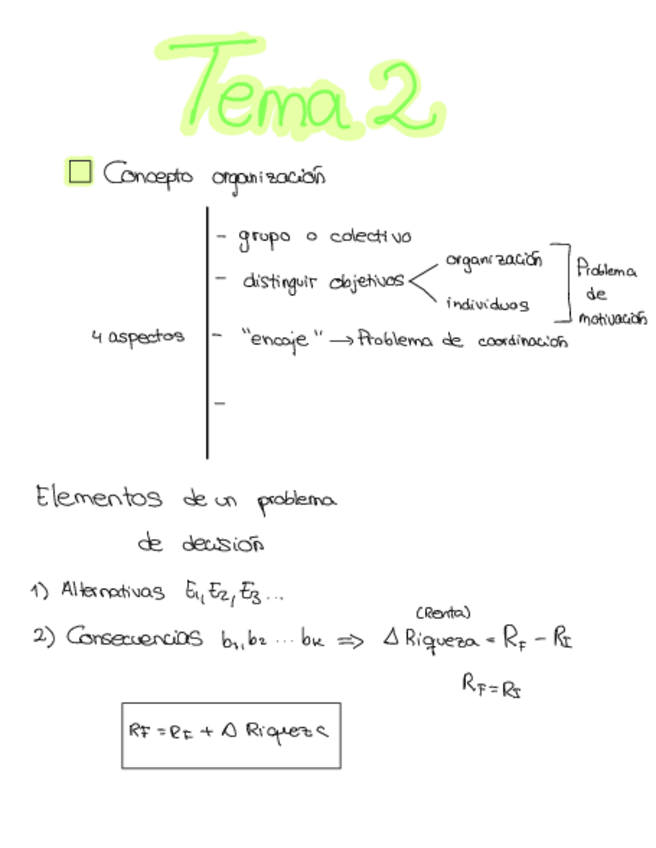 Tema 2
Concepto organización
- grupo o colectivo
- distinguir objetivos
organización
individuos
Problema
de
motivación
4 aspectos
- "encaje" → Problema de coordinación
-
Elementos de un problema
de decisión
1) Alternativas E1, E2, E3...
(Renta)
2) Consecuencias b1, b2 ... bk ⇒ Δ Riqueza = RF - RI
RF = RI
RF = RI + Δ Riqueza